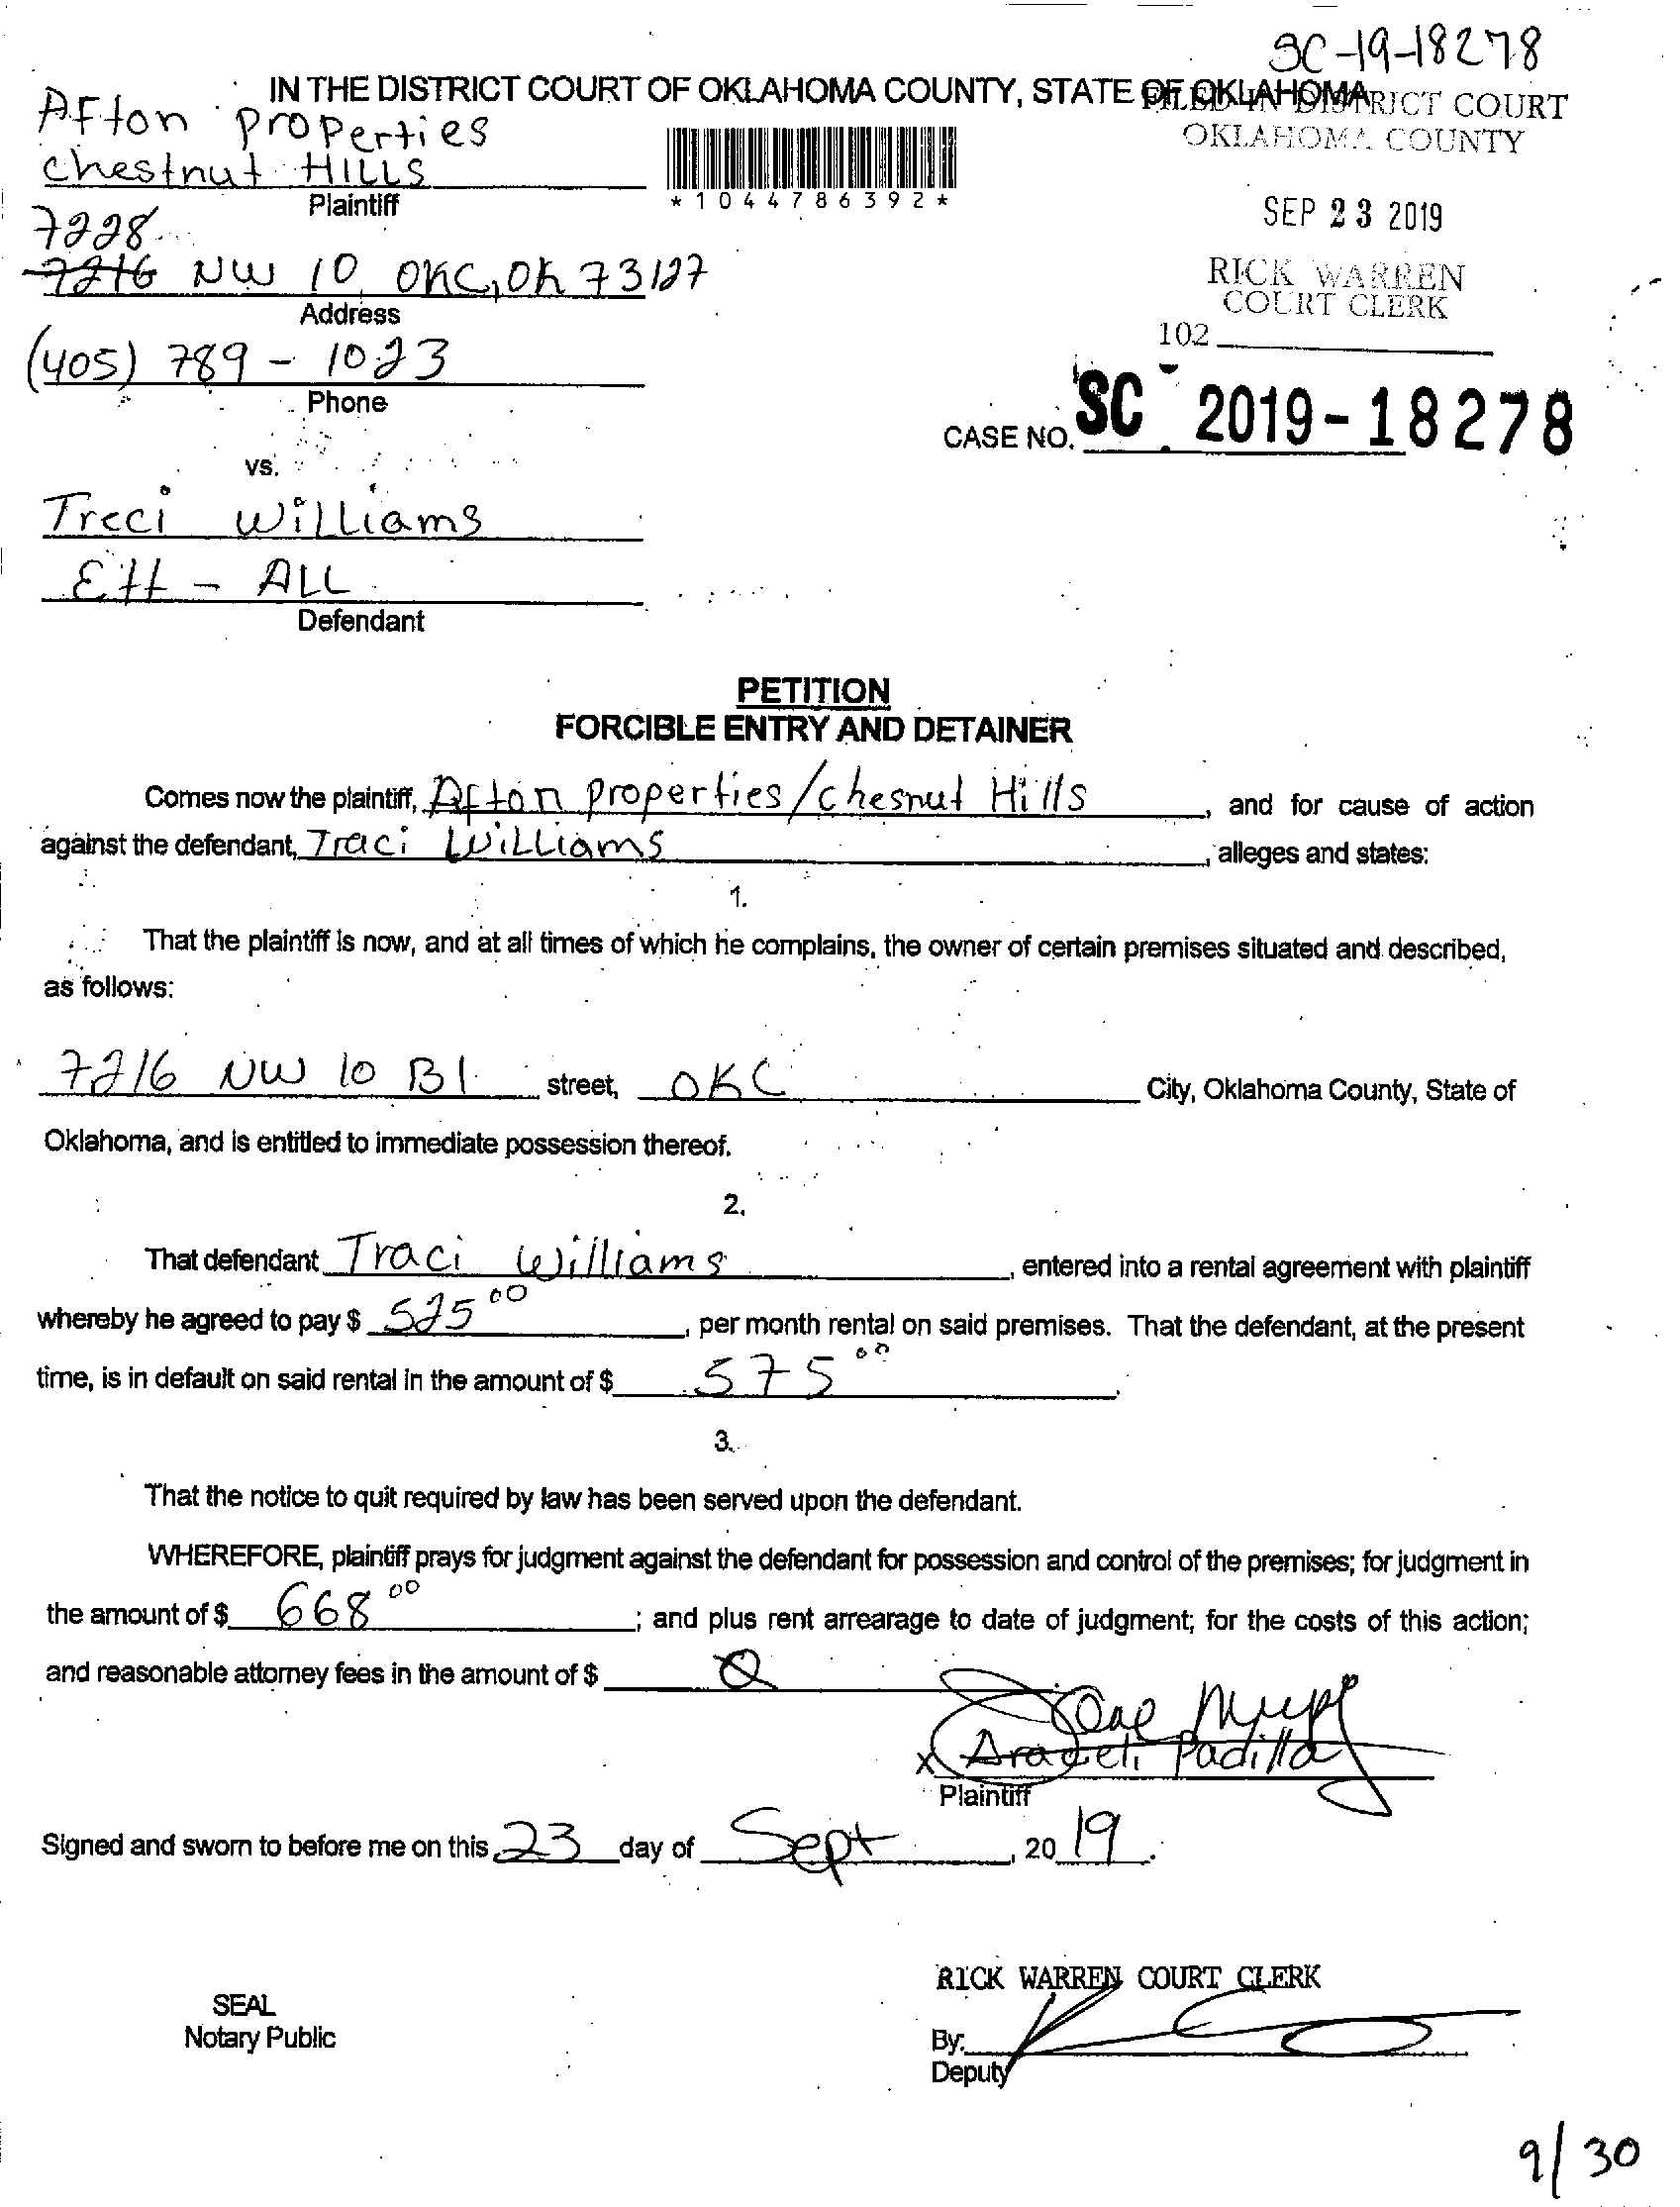 SC-19-18278
IN THE DISTRICT COURT OF OKLAHOMA COUNTY, STATE OF OKLAHOMA
FILED IN DISTRICT COURT
OKLAHOMA COUNTY
Afton Properties
Chestnut HILLS
Plaintiff
*1044786392*
SEP 23 2019
7228
7216 NW 10, OKC, OK 73127
Address
RICK WARREN
COURT CLERK
102
(405) 789-1023
Phone
CASE NO. SC 2019-18278
vs.
Treci Williams
Ett - ALL
Defendant
PETITION
FORCIBLE ENTRY AND DETAINER
Comes now the plaintiff, Afton properties/chesnut Hills, and for cause of action
against the defendant, Traci Williams, alleges and states:
1.
That the plaintiff is now, and at all times of which he complains, the owner of certain premises situated and described,
as follows:
7216 NW 10 B1 street, OKC City, Oklahoma County, State of
Oklahoma, and is entitled to immediate possession thereof.
2.
That defendant Traci Williams, entered into a rental agreement with plaintiff
whereby he agreed to pay $ 525 00, per month rental on said premises. That the defendant, at the present
time, is in default on said rental in the amount of $ 575 00.
3.
That the notice to quit required by law has been served upon the defendant.
WHEREFORE, plaintiff prays for judgment against the defendant for possession and control of the premises; for judgment in
the amount of $ 668 00; and plus rent arrearage to date of judgment; for the costs of this action;
and reasonable attorney fees in the amount of $ 0
x Araceli Padilla
Plaintiff
Signed and sworn to before me on this 23 day of Sept, 2019.
RICK WARREN COURT CLERK
SEAL
Notary Public
By:
Deputy
9/30